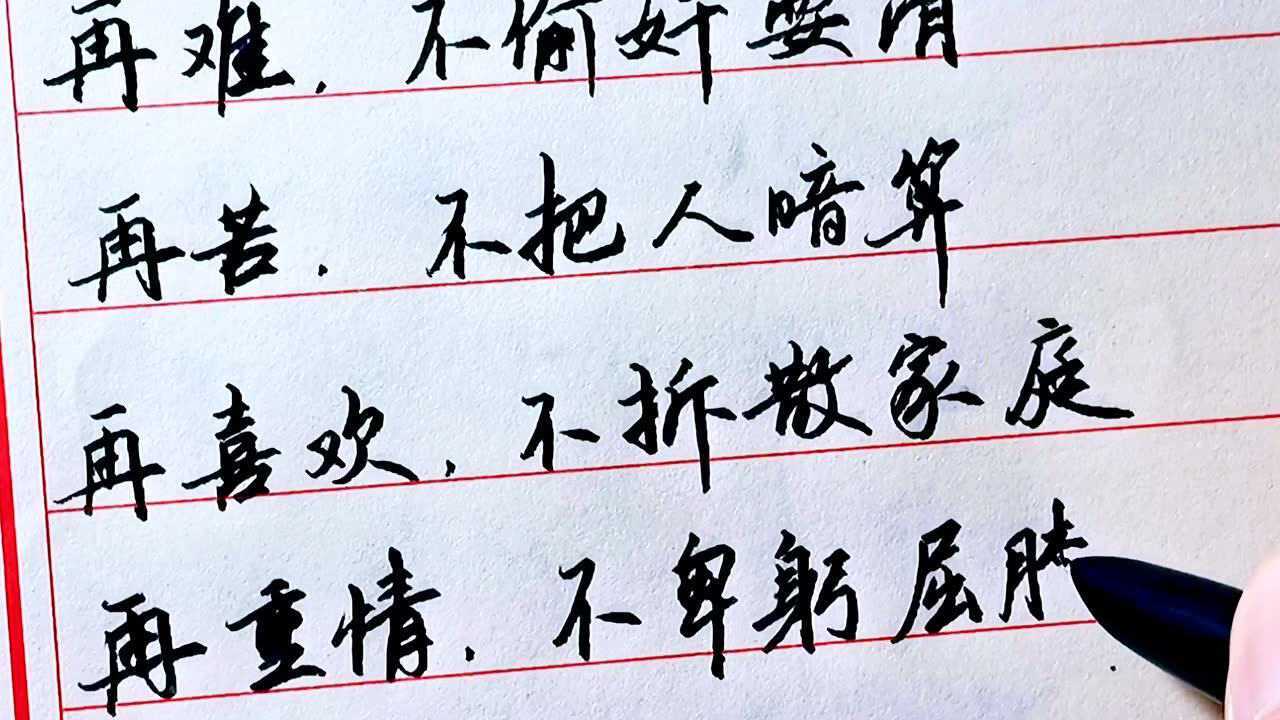 再难，不偷奸耍滑
再苦，不把人暗算
再喜欢，不拆散家庭
再重情，不卑躬屈